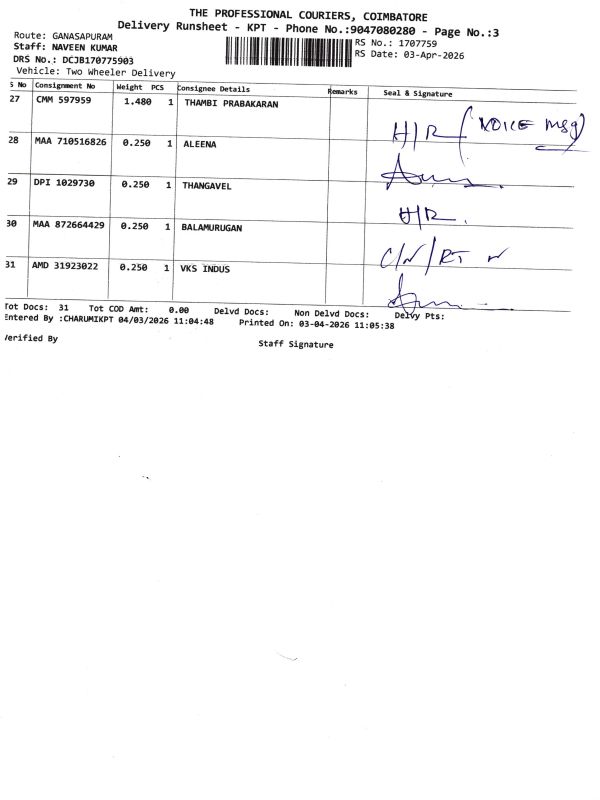 THE PROFESSIONAL COURIERS, COIMBATORE
Delivery Runsheet - KPT - Phone No.:9047080280 - Page No.:3
Route: GANASAPURAM
RS No.: 1707759
Staff: NAVEEN KUMAR
RS Date: 03-Apr-2026
DRS No.: DCJB170775903
Vehicle: Two Wheeler Delivery
S No Consignment No Weight PCS Consignee Details Remarks Seal & Signature
27 CMM 597959 1.480 1 THAMBI PRABAKARAN H/R (VOICE msg)
28 MAA 710516826 0.250 1 ALEENA
29 DPI 1029730 0.250 1 THANGAVEL H/R.
30 MAA 872664429 0.250 1 BALAMURUGAN C/N/RT
31 AMD 31923022 0.250 1 VKS INDUS
Tot Docs: 31 Tot COD Amt: 0.00 Delvd Docs: Non Delvd Docs: Delvy Pts:
Entered By :CHARUMIKPT 04/03/2026 11:04:48 Printed On: 03-04-2026 11:05:38
Verified By
Staff Signature